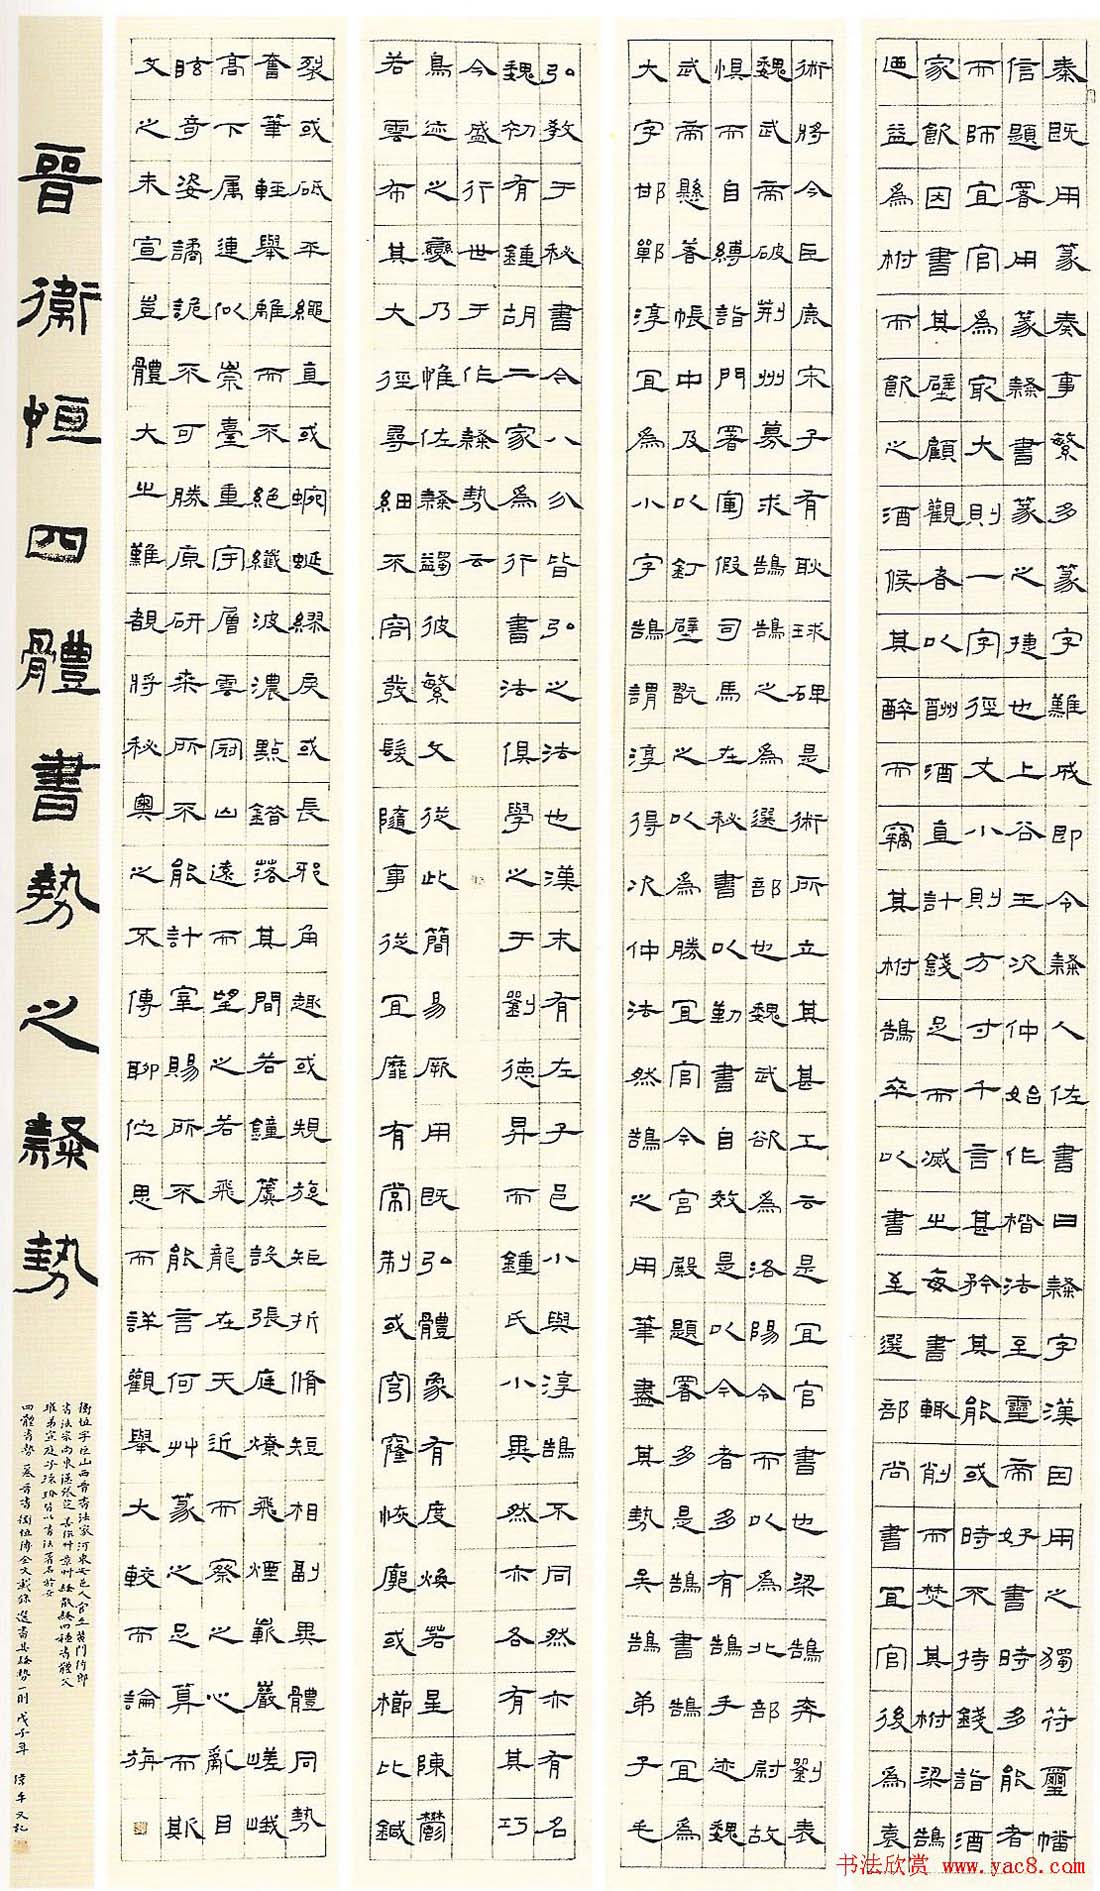 秦既用篆奏事繁多篆字難成即令隸人佐書曰隸字漢因用之獨符璽幡
信題署用篆隸書篆之捷也上谷王次仲始作楷法至靈帝好書時多能者
而師宜官為最大則一字徑丈小則方寸千言甚矜其能或時不持錢詣酒
家飲因書其壁顧觀者以酬酒直計錢足而滅之每書輒削而焚其柎梁鵠
迺益為柎而飲之酒候其醉而竊其柎鵠卒以書至選部尚書宜官後為袁
術將今巨鹿宋子有耿球碑是術所立其甚工云是宜官書也梁鵠奔劉表
魏武帝破荊州募求鵠鵠之為選部也魏武欲為洛陽令而以為北部尉故
懼而自縛詣門署軍假司馬在秘書以勤書自效是以今者多有鵠手迹魏
武帝懸著帳中及以釘壁翫之以為勝宜官今宮殿題署多是鵠書鵠宜為
大字邯鄲淳宜為小字鵠謂淳得次仲法然鵠之用筆盡其勢矣鵠弟子毛
弘教于秘書今八分皆弘之法也漢末有左子邑小與淳鵠不同然亦有名
魏初有鍾胡二家為行書法俱學之于劉德昇而鍾氏小異然亦各有其巧
今盛行世于作隸勢云
鳥迹之變乃惟佐隸蠲彼繁文從此簡易厥用既弘體象有度煥若星陳鬱
若雲布其大徑尋細不容發髮隨事從宜靡有常制或穹窿恢廓或櫛比鍼
裂或砥平繩直或蜿蜒繆戾或長邪角趣或規旋矩折脩短相副異體同勢
奮筆輕舉離而不絕纖波濃點錯落其間若鐘簴設張庭燎飛煙嶄巖嵯峨
高下屬連似崇臺重宇層雲冠山遠而望之若飛龍在天近而察之心亂目
眩奇姿譎詭不可勝原研桑所不能計宰賜所不能言何艸篆之足算而斯
文之未宣豈體大之難覩將秘奧之不傳聊佇思而詳觀舉大較而論旃
晉衛恒四體書勢之隸勢
衛恒字巨山西晉書法家河東安邑人官至黃門侍郎
四體書勢
選書其隸勢一則戊子年
书法欣赏 www.yac8.com